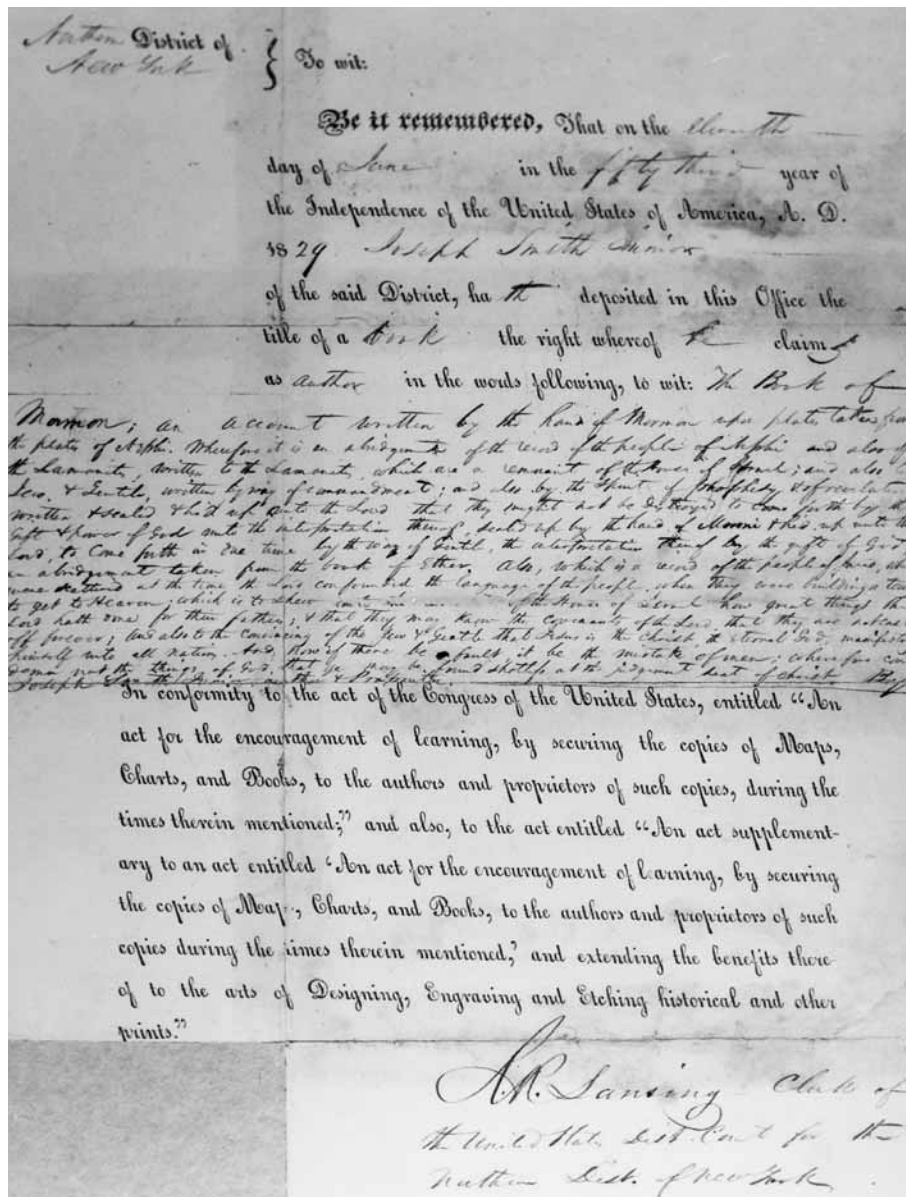 Northern District of
New York
To wit:
Be it remembered, That on the eleventh
day of June in the fifty third year of
the Independence of the United States of America, A. D.
1829 Joseph Smith Junior
of the said District, ha th deposited in this Office the
title of a book the right whereof he claims
as author in the words following, to wit: The Book of
Mormon; an account written by the hand of Mormon upon plates taken from
the plates of Nephi. Wherefore it is an abridgment of the record of the people of Nephi and also of
the Lamanites, written to the Lamanites, which are a remnant of the House of Israel; and also to
Jew, & Gentile, written by way of commandment; and also by the Spirit of prophesy & of revelation
written & sealed & hid up unto the Lord that they might not be destroyed to come forth by the
gift & power of God unto the interpretation thereof, sealed up by the hand of Moroni & hid up unto the
Lord, to come forth in due time by the way of Gentile, the interpretation thereof by the gift of God
an abridgment taken from the book of Ether. Also, which is a record of the people of Jared, who
were scattered at the time the Lord confounded the language of the people when they were building a tower
to get to Heaven; which is to shew of the House of Israel how great things the
Lord hath done for their fathers; & that they may know the covenants of the Lord, that they are not cast
off forever; and also to the convincing of the Jew & Gentile that Jesus is the Christ the Eternal God, manifesting
himself unto all nation. And, now if there be a fault it be the mistake of men; wherefore con
demn not the things of God, that ye may be found spotless at the judgment seat of Christ. By
Joseph Smith Junior author & Proprietor
In conformity to the act of the Congress of the United States, entitled “An
act for the encouragement of learning, by securing the copies of Maps,
Charts, and Books, to the authors and proprietors of such copies, during the
times therein mentioned;” and also, to the act entitled “An act supplement-
ary to an act entitled ‘An act for the encouragement of learning, by securing
the copies of Maps, Charts, and Books, to the authors and proprietors of such
copies during the times therein mentioned,’ and extending the benefits there-
of to the arts of Designing, Engraving and Etching historical and other
prints.”
Lansing Clerk of
the United States Dist. Court for the
Northern Dist. of New York